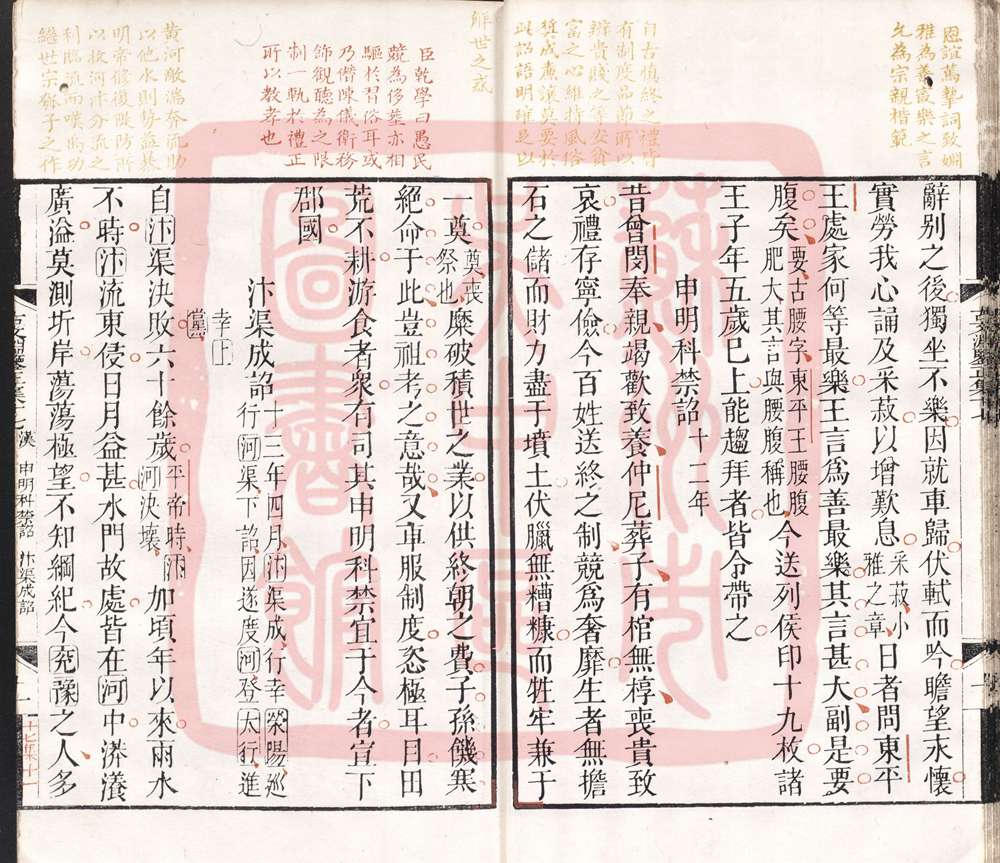 恩誼篤摯詞致嫻
雅為善最樂之言
允為宗親楷範
自古慎終之禮皆
有制度品節所以
辨貴賤之等安貧
富之心維持風俗
奬成廉讓莫要於
此詔語明確足以
解世之惑
辭别之後獨坐不樂因就車歸伏軾而吟瞻望永懷
實勞我心誦及采菽以增歎息采菽小雅之章日者問東平
王處家何等最樂王言爲善最樂其言甚大副是要
腹矣要古腰字東平王腰腹肥大其言與腰腹稱也今送列侯印十九枚諸
王子年五歲已上能趨拜者皆令帶之
申明科禁詔十二年
昔曾閔奉親竭歡致養仲尼葬子有棺無椁喪貴致
哀禮存寧儉今百姓送終之制競爲奢靡生者無擔
石之儲而財力盡于墳土伏臘無糟糠而牲牢兼于
臣乾學曰愚民
競為侈葬亦相
驅於習俗耳或
乃僭陳儀衛務
飾觀聽為之限
制一軌於禮正
所以教孝也
黄河敵湍奔流助
以他水則勢益暴
明帝修復隄防所
以救河汴分流之
利臨流而嘆禹功
繼世宗瓠子之作
一奠奠喪祭也糜破積世之業以供終朝之費子孫饑寒
絕命于此豈祖考之意哉又車服制度恣極耳目田
荒不耕游食者衆有司其申明科禁宜于今者宣下
郡國
汴渠成詔十三年四月汴渠成行幸滎陽巡行河渠下詔因遂度河登太行進
幸上黨
自汴渠決敗六十餘歲平帝時汴河決壞加頃年以來雨水
不時汴流東侵日月益甚水門故處皆在河中漭瀁
廣溢莫測圻岸蕩蕩極望不知綱紀今兖豫之人多
漢 申明科禁詔 汴渠成詔